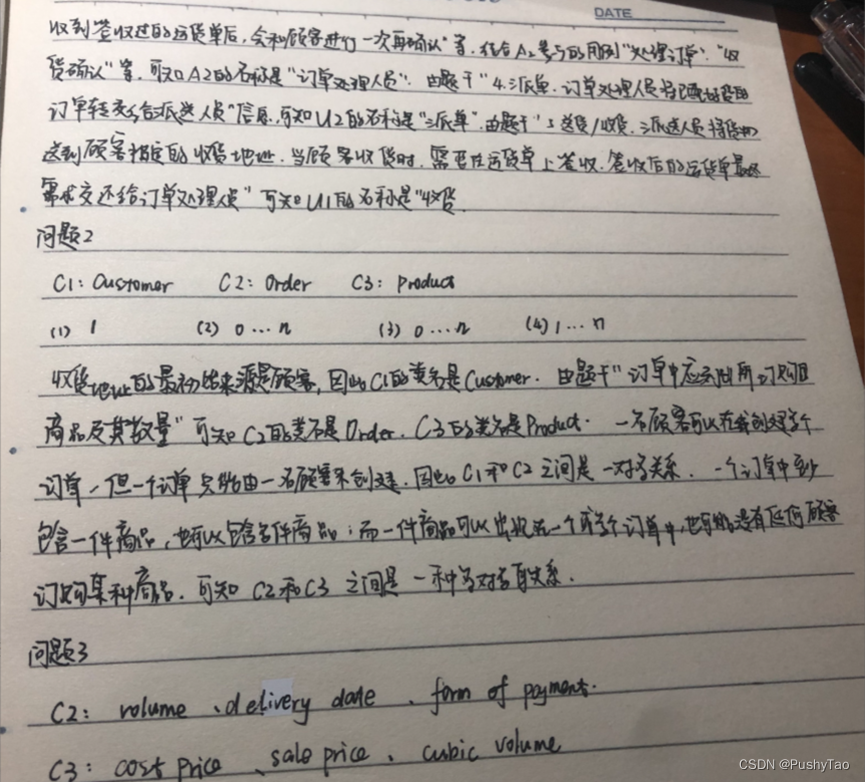 DATE
收到签收过的运货单后,会和顾客进行一次再确认"等,结合A2参与的用例"处理订单"、"收
货确认"等,可知A2的名称是"订单处理人员"。由题干"4.派单.订单处理人员将已配好货的
订单转交给派送人员"信息,可知U2的名称是"派单".由题干"5送货/收货.派送人员将货物
送到顾客指定的收货地址.当顾客收货时,需要在运货单上签收.签收后的运货单最终
需求交还给订单处理人员"可知U1的名称是"收货.
问题2
C1: Customer C2: Order C3: Product
(1) 1 (2) 0...n (3) 0...n (4) 1...n
收货地址的最初来源是顾客,因此C1的类名是Customer.由题干"订单中应列出所订购的
商品及其数量"可知C2的类名是Order.C3的类名是Product.一名顾客可以创建多个
订单,但一个订单只能由一名顾客来创建.因此C1和C2之间是一对多关系.一个订单中至少
包含一件商品,也可以包含多件商品;而一件商品可以出现在一个或多个订单中,也可能没有任何顾客
订购某种商品.可知C2和C3之间是一种多对多关系.
问题3
C2: volume、delivery date、form of payment.
C3: cost price、sale price、cubic volume
CSDN @PushyTao